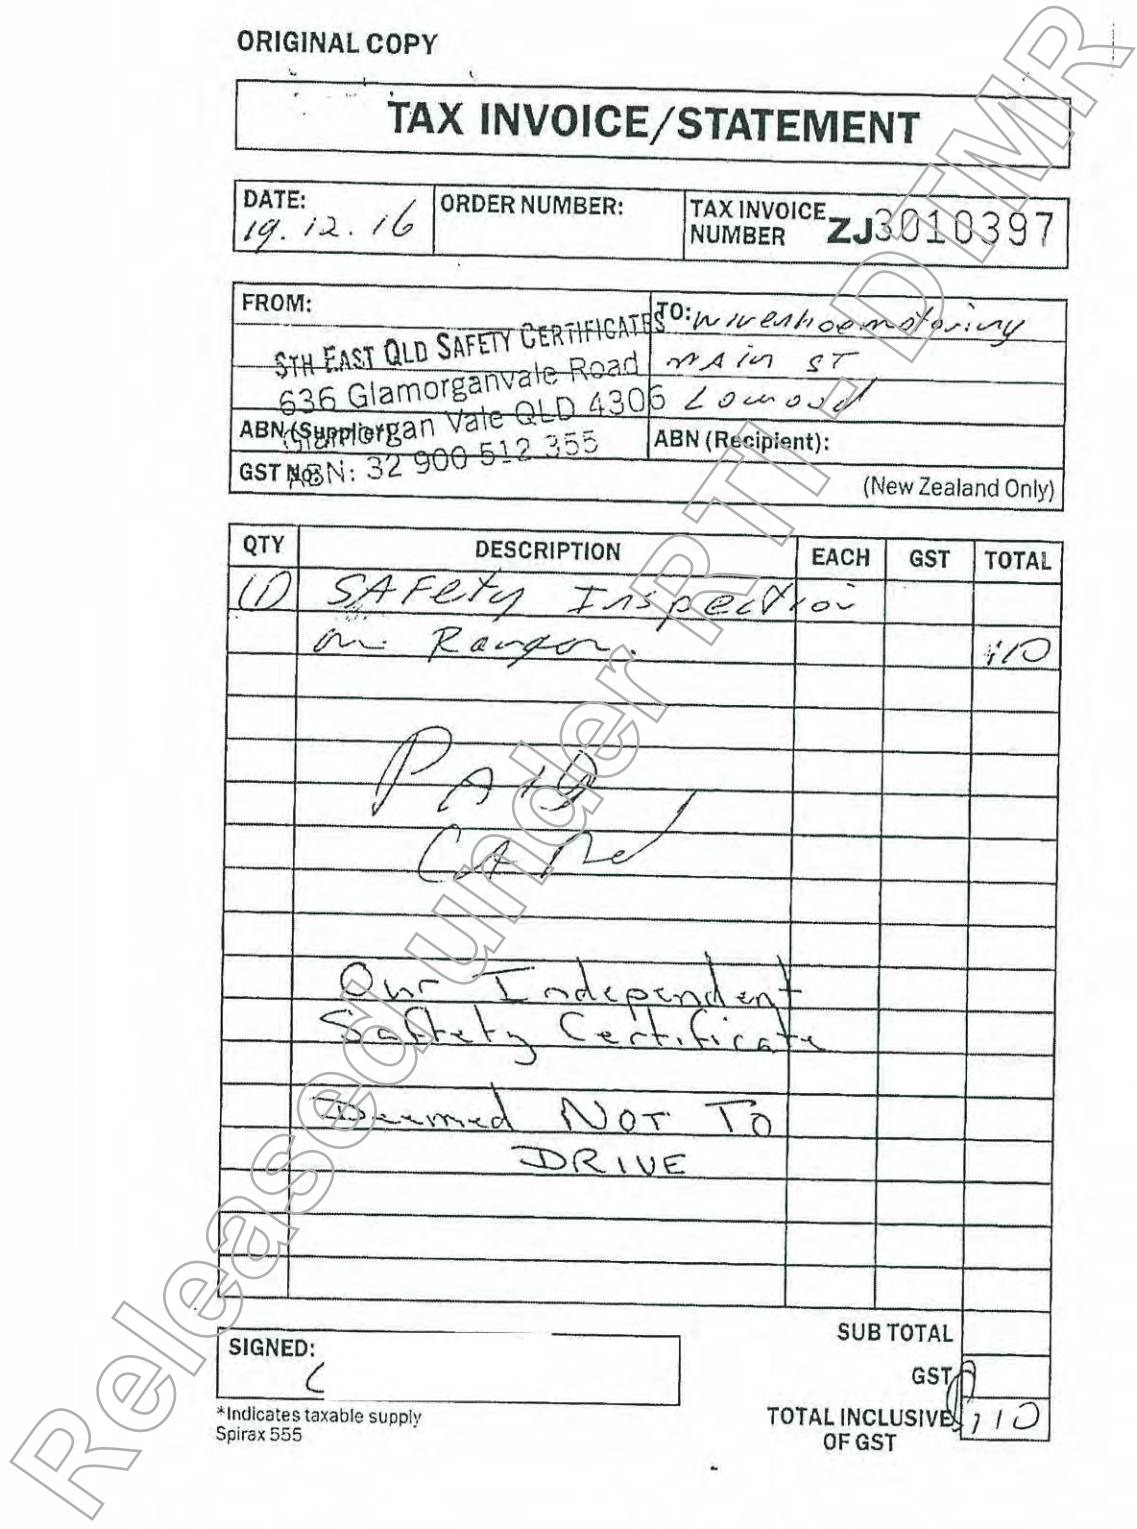 ORIGINAL COPY
TAX INVOICE/STATEMENT
DATE:
19.12.16
ORDER NUMBER:
TAX INVOICE
NUMBER
ZJ3010397
FROM:
STH EAST QLD SAFETY CERTIFICATES
636 Glamorganvale Road
Glamorgan Vale QLD 4306
ABN: 32 900 512 355
ABN (Supplier):
GST No:
TO: Wivenhoe motoring
MAin ST
Lowood
ABN (Recipient):
(New Zealand Only)
QTY DESCRIPTION EACH GST TOTAL
(1) SAFety Inspection
on Ranger. 110
PAID
CARd
Our Independent
Saftety Certificate
Deemed NOT To
DRIVE
SIGNED:
SUB TOTAL
GST
TOTAL INCLUSIVE
OF GST
110
*Indicates taxable supply
Spirax 555
Released under RTI - DTMR